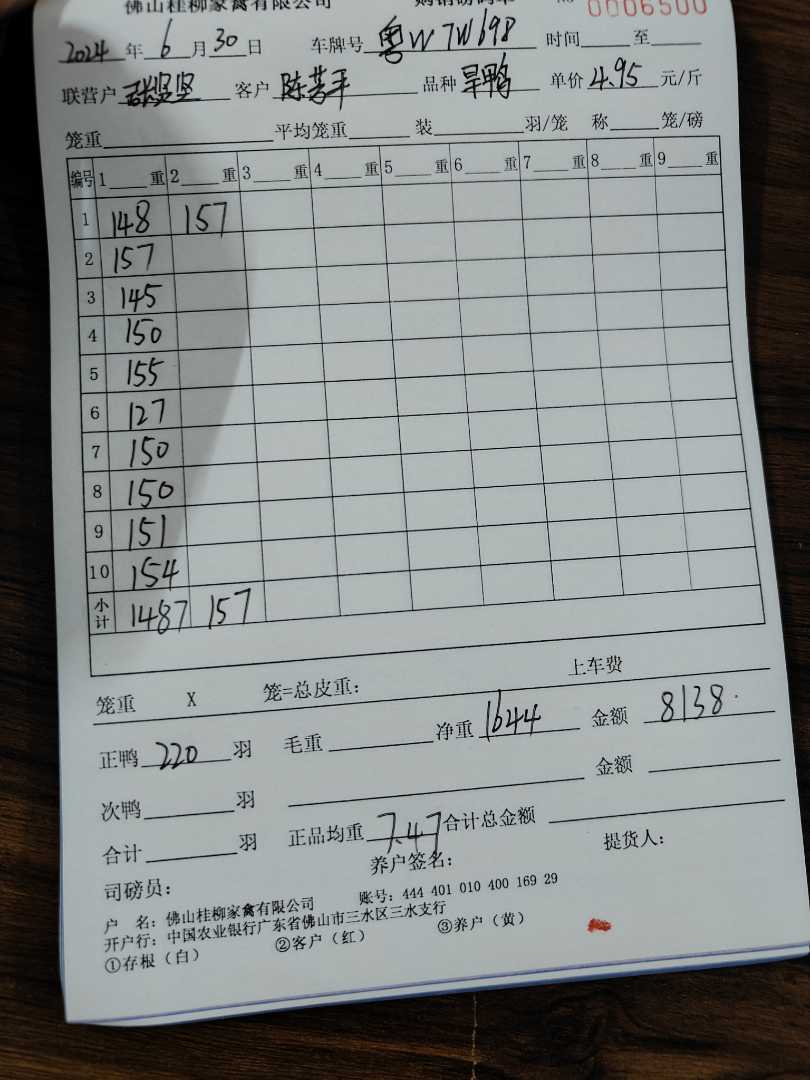 佛山桂柳家禽有限公司 购销磅码单 No 0006500
2024年6月30日 车牌号 粤W7W698 时间____至____
联营户 客户 陈芳平 品种 旱鸭 单价 4.95 元/斤
笼重____平均笼重____装____羽/笼 称____笼/磅
编号 1____重 2____重 3____重 4____重 5____重 6____重 7____重 8____重 9____重
1 148 157
2 157
3 145
4 150
5 155
6 127
7 150
8 150
9 151
10 154
小计 1487 157
笼重 X 笼=总皮重: 上车费
正鸭 220 羽 毛重____净重 1644 金额 8138.
次鸭____羽 ____ 金额____
合计____羽 正品均重 7.47 合计总金额____
司磅员: 养户签名: 提货人:
户 名: 佛山桂柳家禽有限公司 账号: 444 401 010 400 169 29
开户行: 中国农业银行广东省佛山市三水区三水支行
①存根（白） ②客户（红） ③养户（黄）